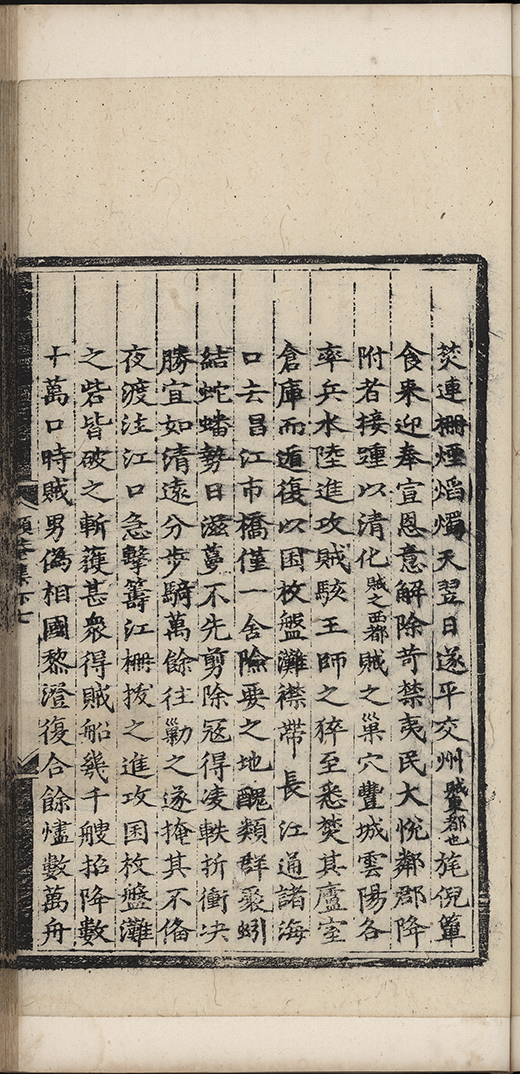 焚連柵煙熖燭天翌日遂平交州賊東都也旄倪簞
食來迎奉宣恩意解除苛禁夷民大悅鄰郡降
附者接踵以清化賊之西都賊之巢穴豐城雲陽各
率兵水陸進攻賊駭王師之猝至悉焚其廬室
倉庫而遁復以困枚盤灘襟帶長江通諸海
口去昌江市橋僅一舍險要之地醜類群聚蚓
結蛇蟠勢日滋蔓不先剪除冦得凌軼折衝决
勝宜如清遠分步騎萬餘往勦之遂掩其不偹
夜渡注江口急擊籌江柵拔之進攻困枚盤灘
之砦皆破之斬獲甚衆得賊船幾千艘招降數
十萬口時賊男偽相國黎澄復合餘燼數萬舟
頥菴集下七